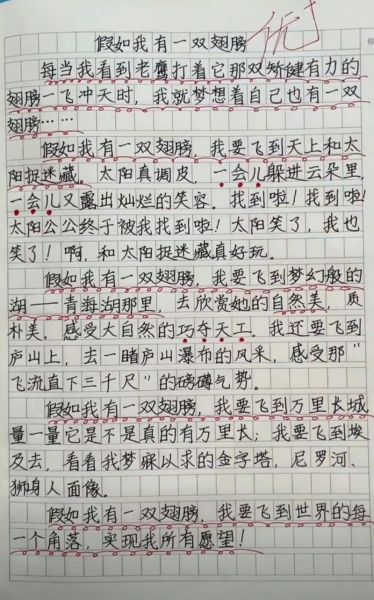 假如我有一双翅膀
优
每当我看到老鹰打着它那双矫健有力的
翅膀一飞冲天时，我就梦想着自己也有一双
翅膀……
假如我有一双翅膀，我要飞到天上和太
阳捉迷藏。太阳真调皮，一会儿躲进云朵里，
一会儿又露出灿烂的笑容。找到啦！找到啦！
太阳公公终于被我找到啦！太阳笑了，我也
笑了！啊，和太阳捉迷藏真好玩。
假如我有一双翅膀，我要飞到梦幻般的
湖——青海湖那里，去欣赏她的自然美，质
朴美，感受大自然的巧夺天工。我还要飞到
庐山上，去一睹庐山瀑布的风采，感受那“
飞流直下三千尺”的磅礴气势。
假如我有一双翅膀，我要飞到万里长城
量一量它是不是真的有万里长；我要飞到埃
及去，看看我梦寐以求的金字塔，尼罗河、
狮身人面像。
假如我有一双翅膀，我要飞到世界的每
一个角落，实现我所有愿望！